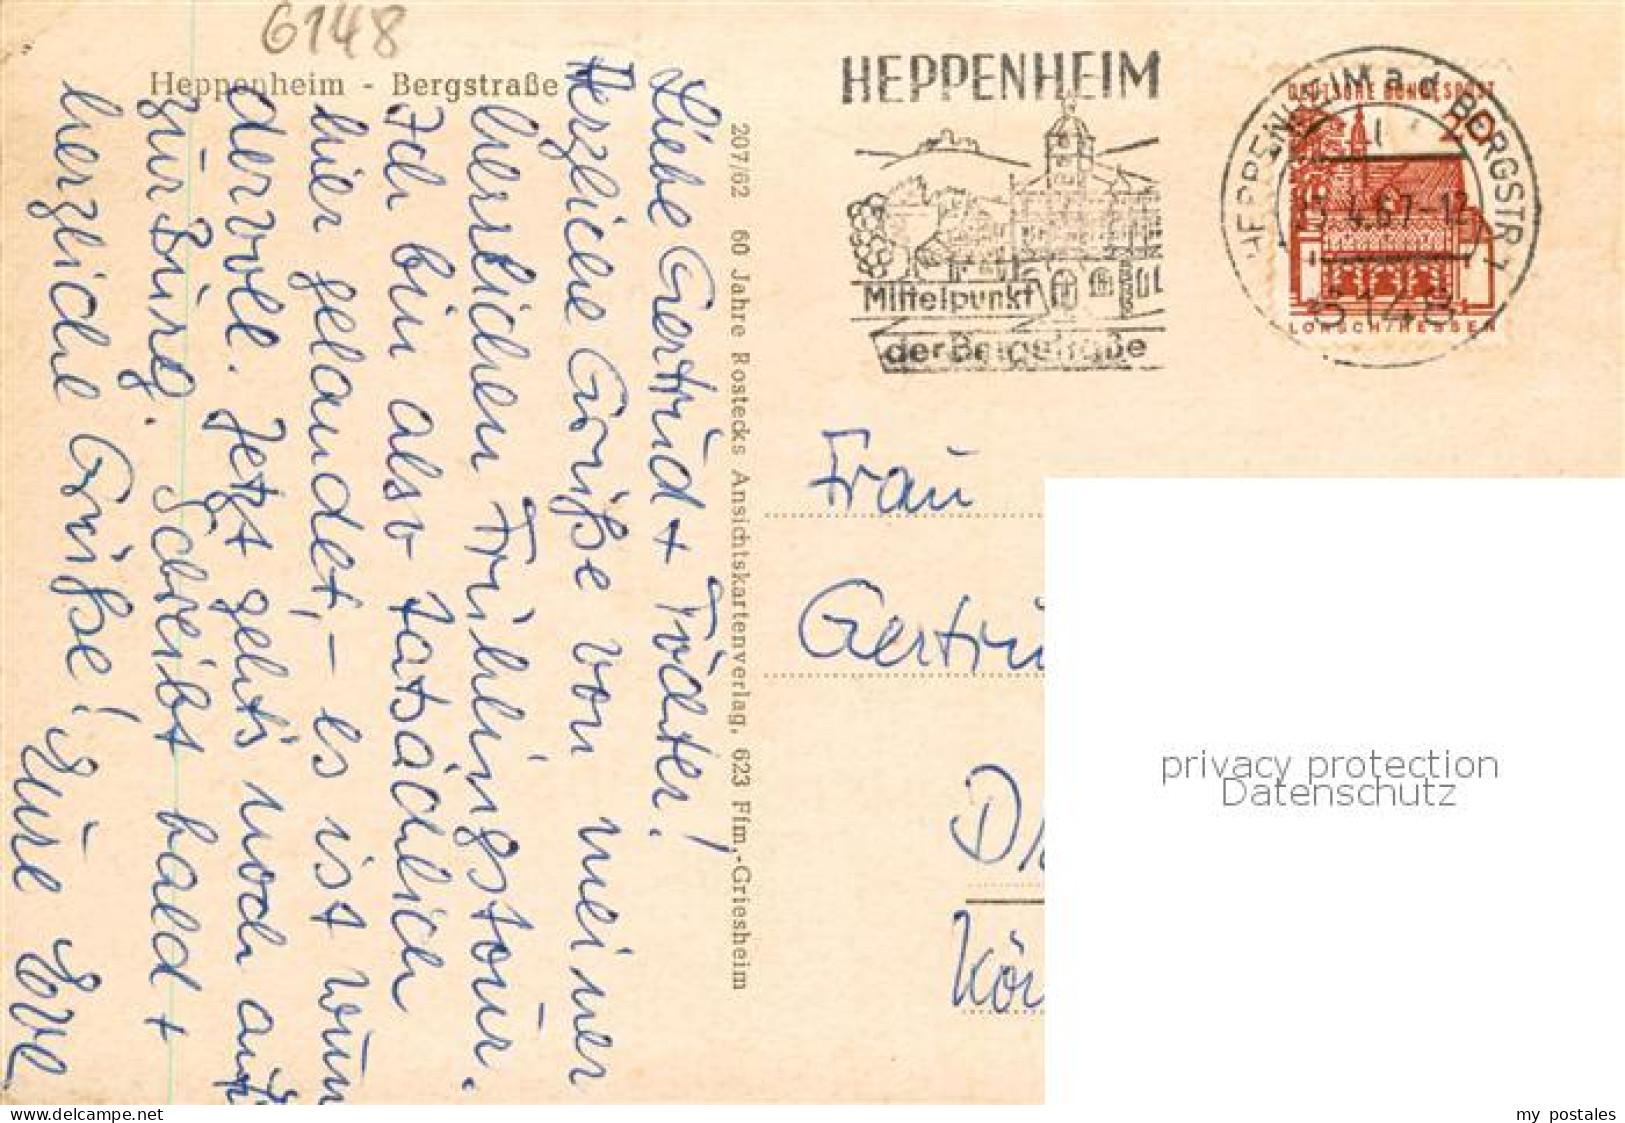 6148
Heppenheim - Bergstraße
Liebe Gertrud + Töchter!
Herzliche Grüße von meiner
herrlichen Frühlingstour.
Ich bin also tatsächlich
hier gelandet, - es ist wun
dervoll. Jetzt geht's noch auf
zur Burg. Schreibt bald +
herzliche Grüße! Eure Eve
207/62 60 Jahre Rostecks Ansichtskartenverlag, 623 Ffm.-Griesheim
HEPPENHEIM
Mittelpunkt
der Bergstraße
HEPPENHEIM a d BERGSTR 1
4.67-12
6148
DEUTSCHE BUNDESPOST
20
LORSCH/HESSEN
Frau
Gertru
Kör
privacy protection
Datenschutz
my postales